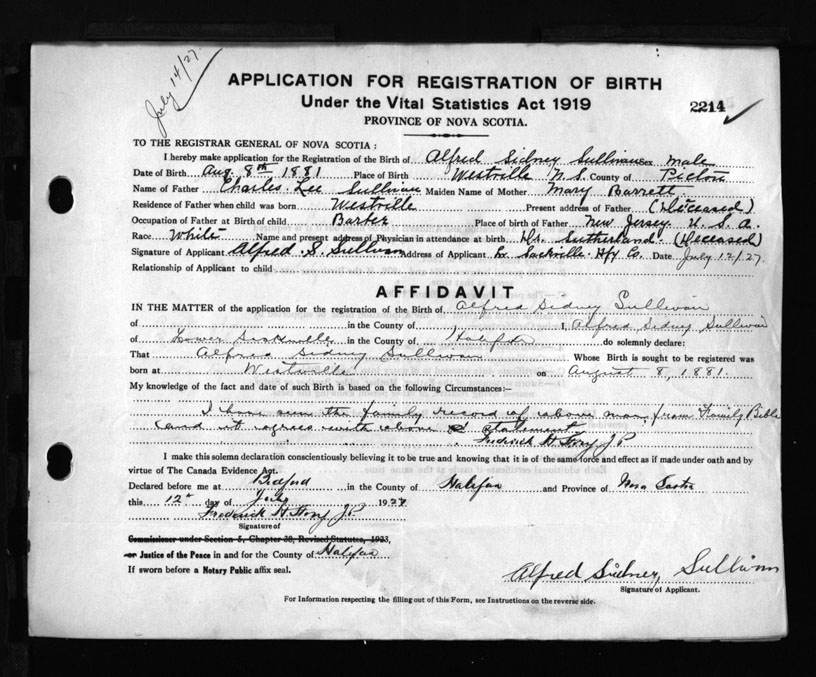 July 14/27.
APPLICATION FOR REGISTRATION OF BIRTH
Under the Vital Statistics Act 1919
2214
PROVINCE OF NOVA SCOTIA.
TO THE REGISTRAR GENERAL OF NOVA SCOTIA:
I hereby make application for the Registration of the Birth of Alfred Sidney Sullivan Sex Male
Date of Birth Aug. 8th 1881 Place of Birth Westville N.S. County of Pictou
Name of Father Charles Lee Sullivan Maiden Name of Mother Mary Barrett
Residence of Father when child was born Westville Present address of Father (Deceased)
Occupation of Father at Birth of child Barber Place of birth of Father New Jersey U.S.A.
Race White Name and present address of Physician in attendance at birth Dr. Sutherland. (Deceased)
Signature of Applicant Alfred S. Sullivan Address of Applicant Lr Sackville. Hfx Co. Date July 12/27.
Relationship of Applicant to child
AFFIDAVIT
IN THE MATTER of the application for the registration of the Birth of Alfred Sidney Sullivan
of in the County of I, Alfred Sidney Sullivan
of Lower Sackville in the County of Halifax do solemnly declare:
That Alfred Sidney Sullivan Whose Birth is sought to be registered was
born at Westville on August 8, 1881.
My knowledge of the fact and date of such Birth is based on the following Circumstances:—
I have seen the family record of above man, from Family Bible
and it agrees with above statement.
Frederick H. J.P.
I make this solemn declaration conscientiously believing it to be true and knowing that it is of the same force and effect as if made under oath and by
virtue of The Canada Evidence Act.
Declared before me at Bedford in the County of Halifax and Province of Nova Scotia
this 12th day of July 1927
Frederick H. J.P.
Signature of
Commissioner under Section 5, Chapter 38, Revised Statutes, 1923,
or Justice of the Peace in and for the County of Halifax
If sworn before a Notary Public affix seal.
Alfred Sidney Sullivan
Signature of Applicant.
For Information respecting the filling out of this Form, see Instructions on the reverse side.